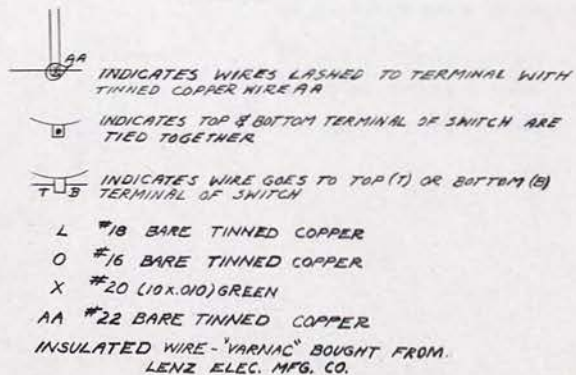 AA
INDICATES WIRES LASHED TO TERMINAL WITH
TINNED COPPER WIRE AA
INDICATES TOP & BOTTOM TERMINAL OF SWITCH ARE
TIED TOGETHER
T B
INDICATES WIRE GOES TO TOP (T) OR BOTTOM (B)
TERMINAL OF SWITCH
L #18 BARE TINNED COPPER
O #16 BARE TINNED COPPER
X #20 (10X.010) GREEN
AA #22 BARE TINNED COPPER
INSULATED WIRE - "VARNAC" BOUGHT FROM
LENZ ELEC. MFG. CO.